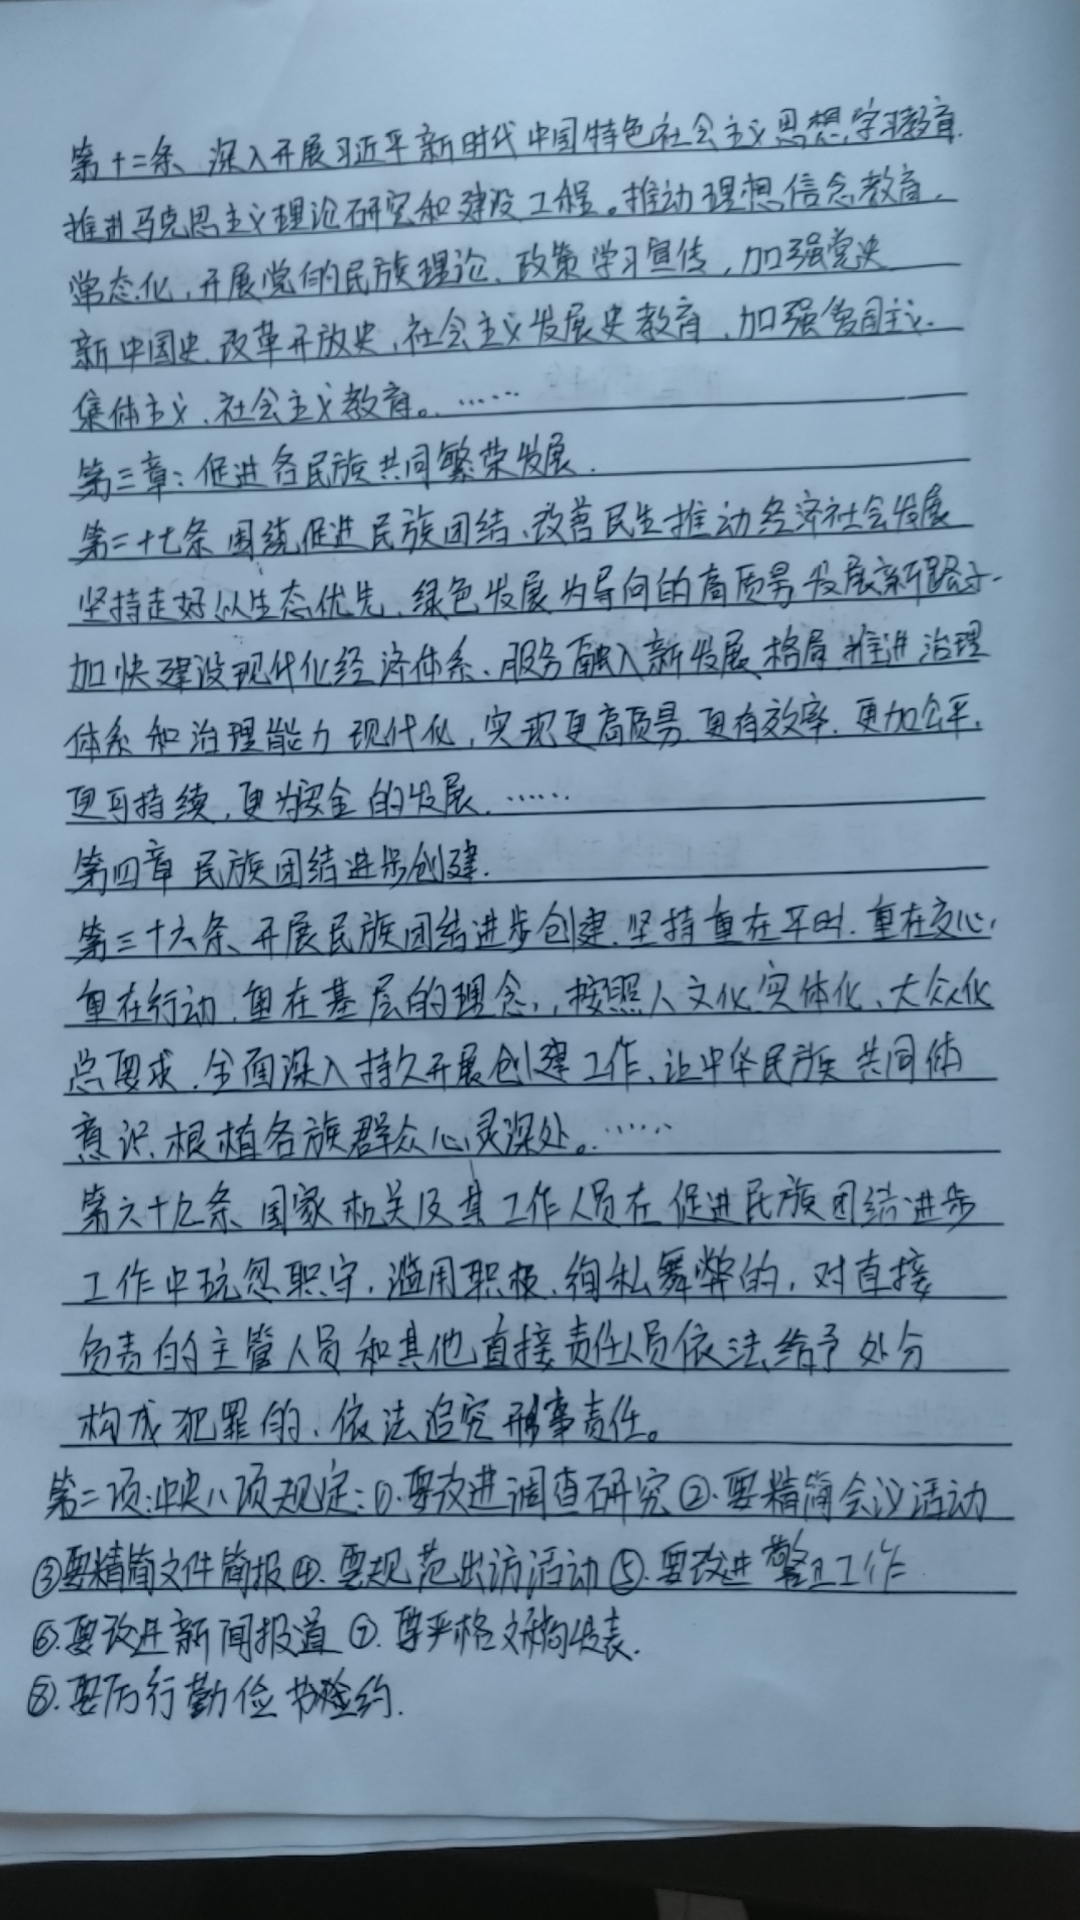 第十二条、深入开展习近平新时代中国特色社会主义思想学习教育.
推进马克思主义理论研究和建设工程。推动理想信念教育,
常态化,开展党的民族理论、政策学习宣传,加强党史
新中国史、改革开放史,社会主义发展史教育,加强爱国主义.
集体主义、社会主义教育。……
第三章:促进各民族共同繁荣发展.
第二十七条 围绕促进民族团结、改善民生推动经济社会发展
坚持走好以生态优先、绿色发展为导向的高质量发展新路子.
加快建设现代化经济体系、服务融入新发展格局 推进治理
体系和治理能力现代化,实现更高质量.更有效率.更加公平.
更可持续,更为安全的发展.……
第四章 民族团结进步创建.
第三十六条、开展民族团结进步创建.坚持重在平时.重在交心,
重在行动.重在基层的理念,,按照人文化、实体化、大众化
总要求.全面深入持久开展创建工作、让中华民族共同体
意识.根植各族群众心灵深处。……
第六十九条、国家机关及其工作人员在促进民族团结进步
工作中玩忽职守,滥用职权、徇私舞弊的,对直接
负责的主管人员和其他直接责任人员依法给予处分
构成犯罪的、依法追究刑事责任。
第二项:中央八项规定:①.要改进调查研究②.要精简会议活动
③要精简文件简报④.要规范出访活动⑤.要改进警卫工作
⑥.要改进新闻报道⑦.要严格文稿发表.
⑧.要厉行勤俭节俭约.